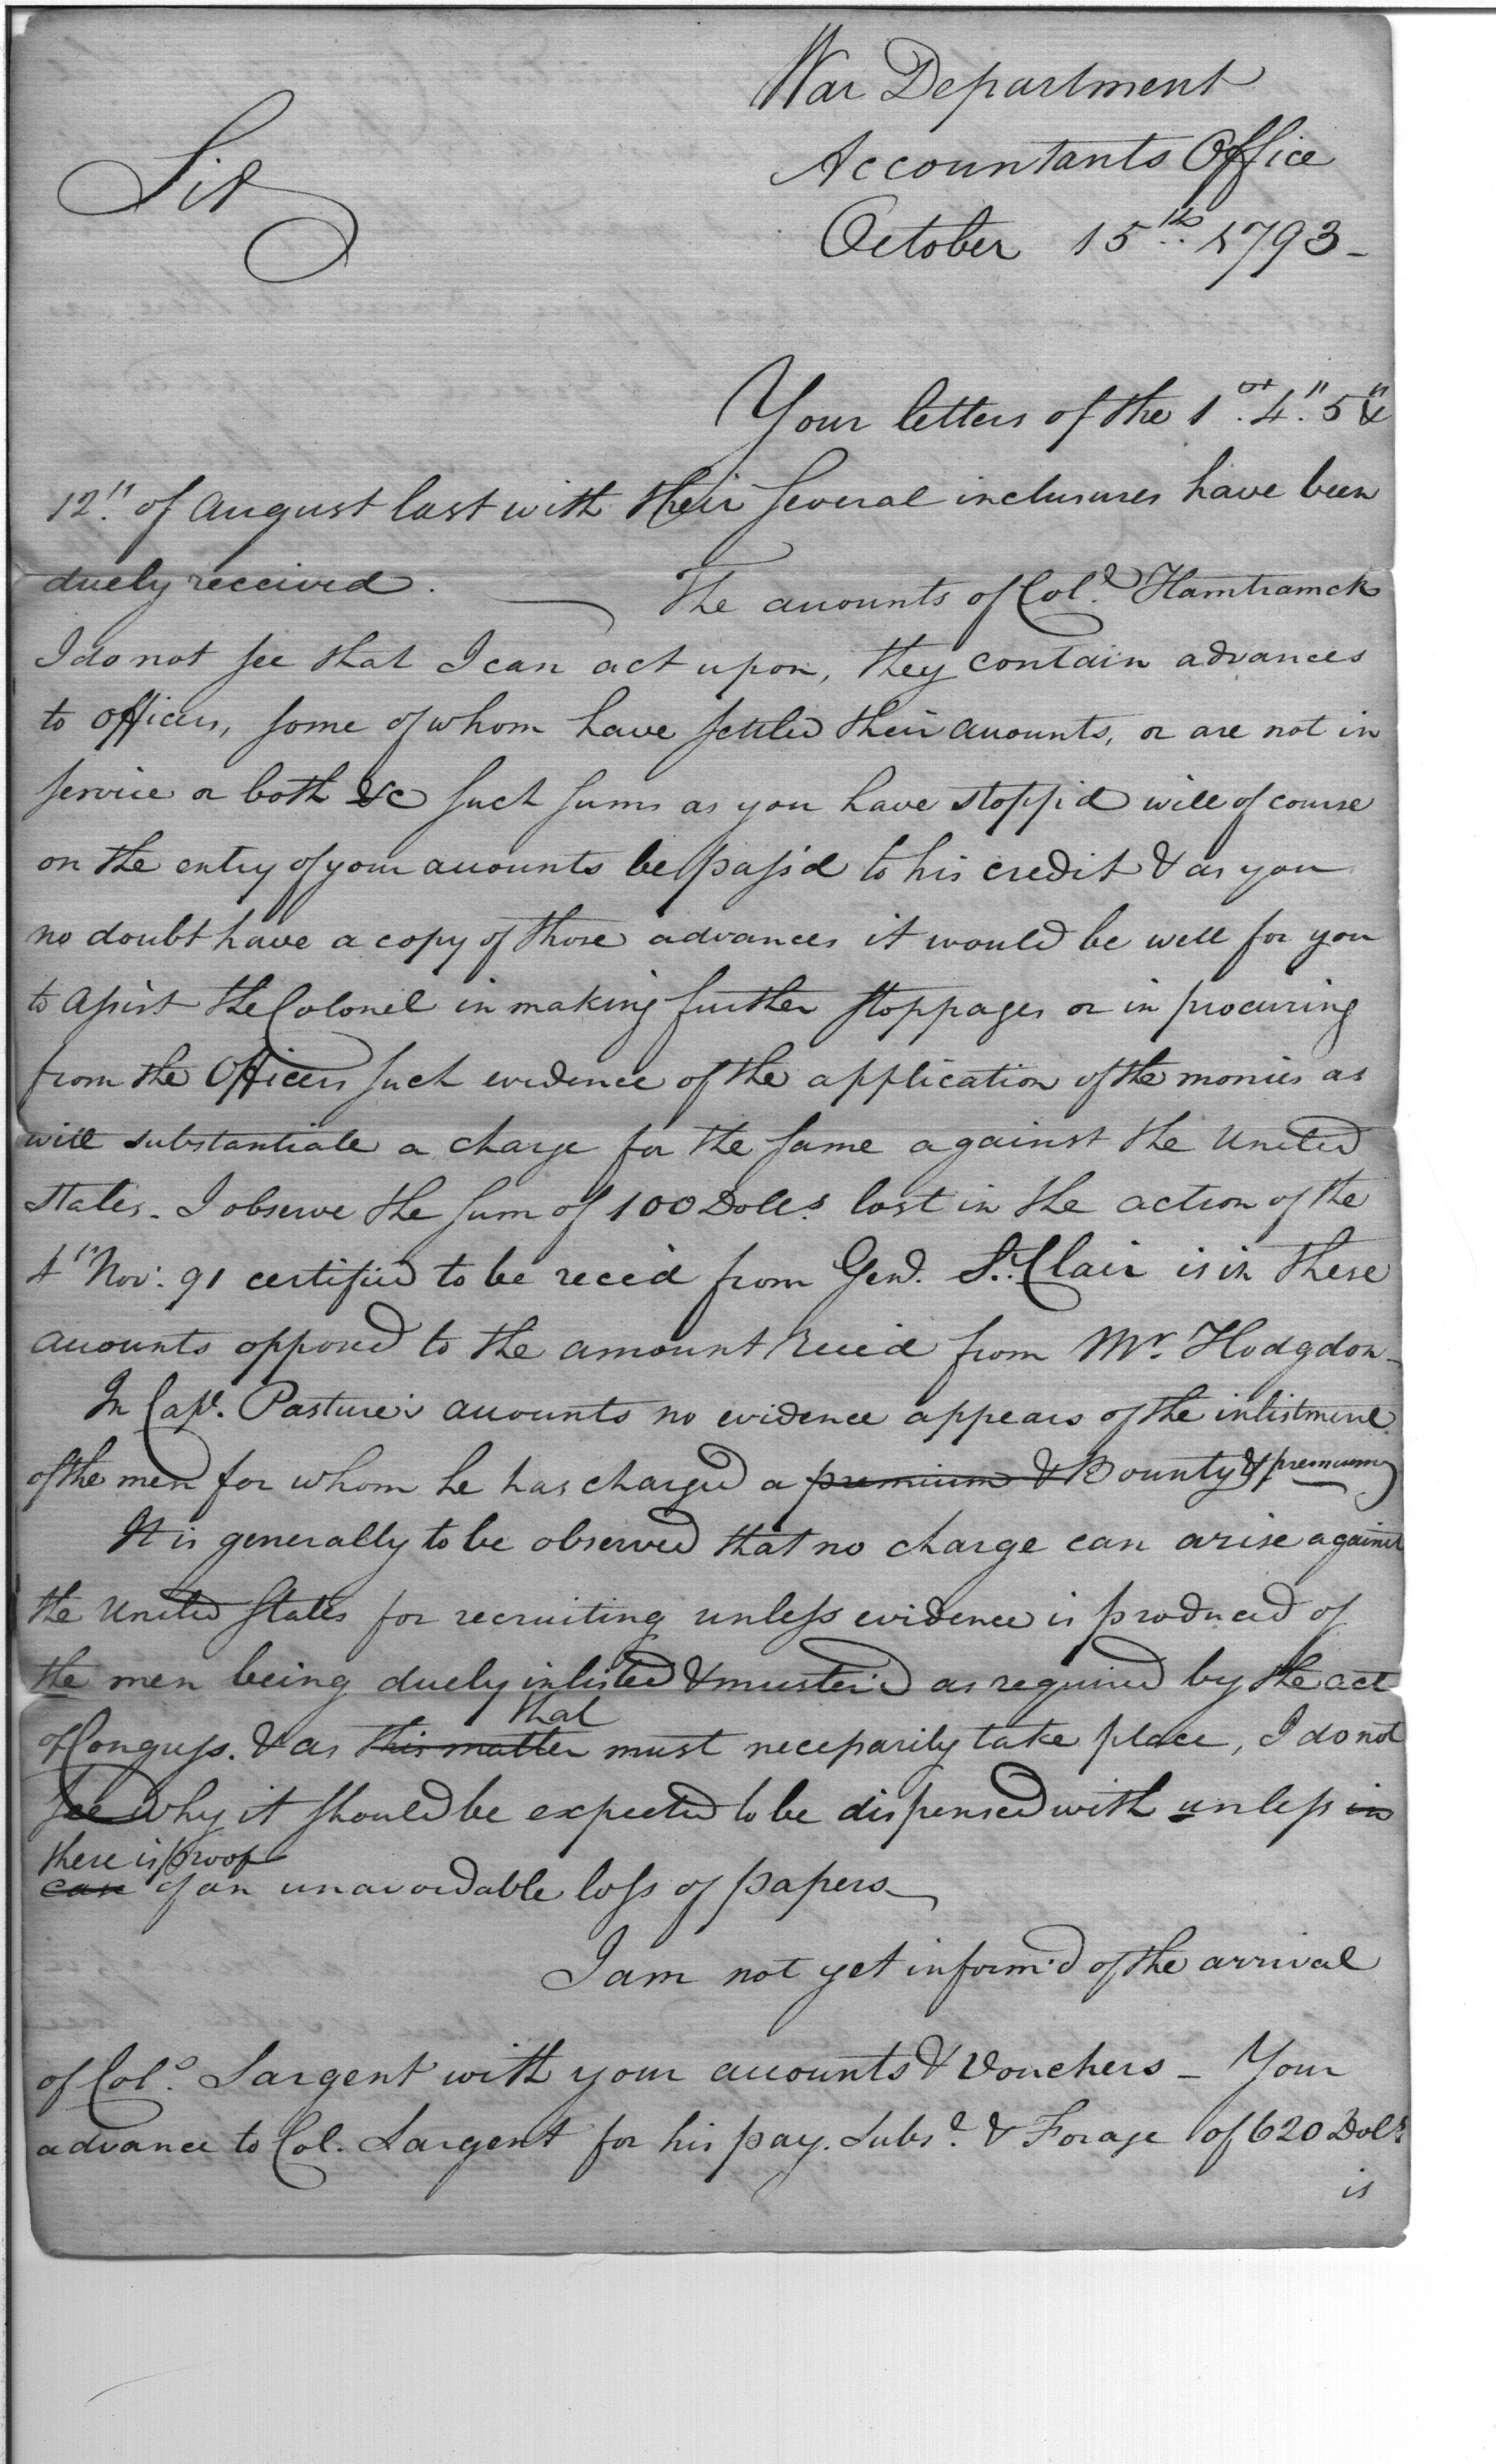 War Department
Accountants Office
October 15th 1793-
Sir
Your letters of the 1st. 4". 5" &
12". of August last with their several inclusures have been
duely received. The accounts of Colo. Hamtramck
I do not see that I can act upon, they contain advances
to officers, some of whom have settled their accounts, or are not in
service or both &c such sums as you have stopp'd will of course
on the entry of your accounts be pass'd to his credit & as you
no doubt have a copy of those advances it would be well for you
to assist the Colonel in making further stoppages or in procuring
from the Officers such evidence of the application of the monies as
will substantiate a charge for the same against the United
States. I observe the sum of 100 Dolls. lost in the action of the
4th Nov: 91 certified to be recd from Genl. St. Clair is in these
accounts opposed to the amount recied from Mr. Hodgdon-
In Capt. Pasture's accounts no evidence appears of the inlistment
of the men for whom he has charged a premium & Bounty & premium
It is generally to be observed that no charge can arise against
the United States for recruiting unless evidence is produced of
the men being duely inlisted & muster'd as required by the act
that
of Congress. & as this matter must necessarily take place, I do not
see why it should be expected to be dispensed with unless in
there is proof
case of an unavoidable loss of papers-
I am not yet inform'd of the arrival
of Colo. Sargent with your accounts & Vouchers - Your
advance to Col. Sargent for his pay. Subse. & Forage of 620 Dolrs
is